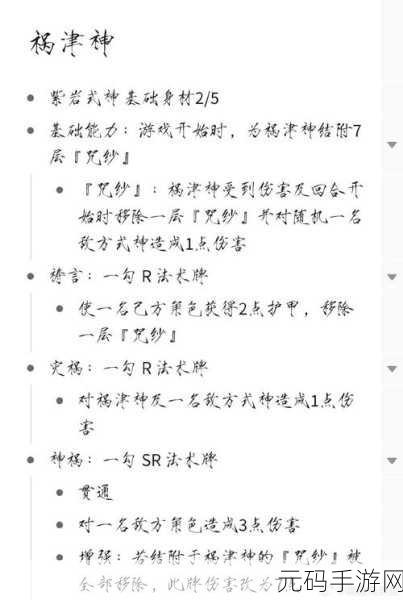 祸津神
紫岩式神 基础身材2/5
基础能力：游戏开始时，为祸津神结附7
层『咒纱』
『咒纱』：祸津神受到伤害及回合开
始时移除一层『咒纱』并对随机一名
敌方式神造成1点伤害
祷言：一勾 R 法术牌
使一名己方角色获得2点护甲，移除
一层『咒纱』
灾祸：一勾 R 法术牌
对祸津神及一名敌方式神造成1点伤
害
神祸：一勾 SR 法术牌
贯通
对一名敌方角色造成3点伤害
增强：若结附于祸津神的『咒纱』被
全部移除，此牌伤害改为
元码手游网